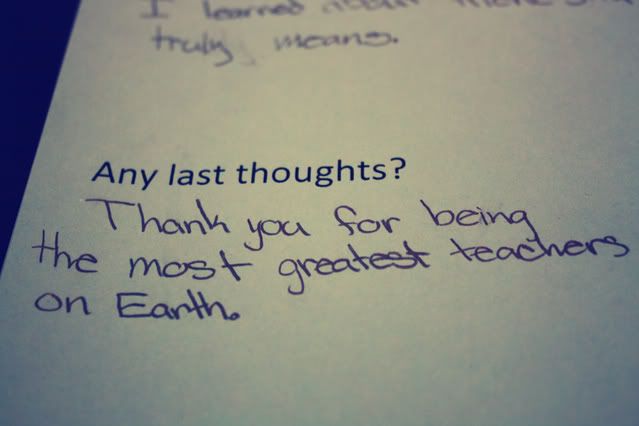 I learned about
truly means.
Any last thoughts?
Thank you for being
the most greatest teachers
on Earth.